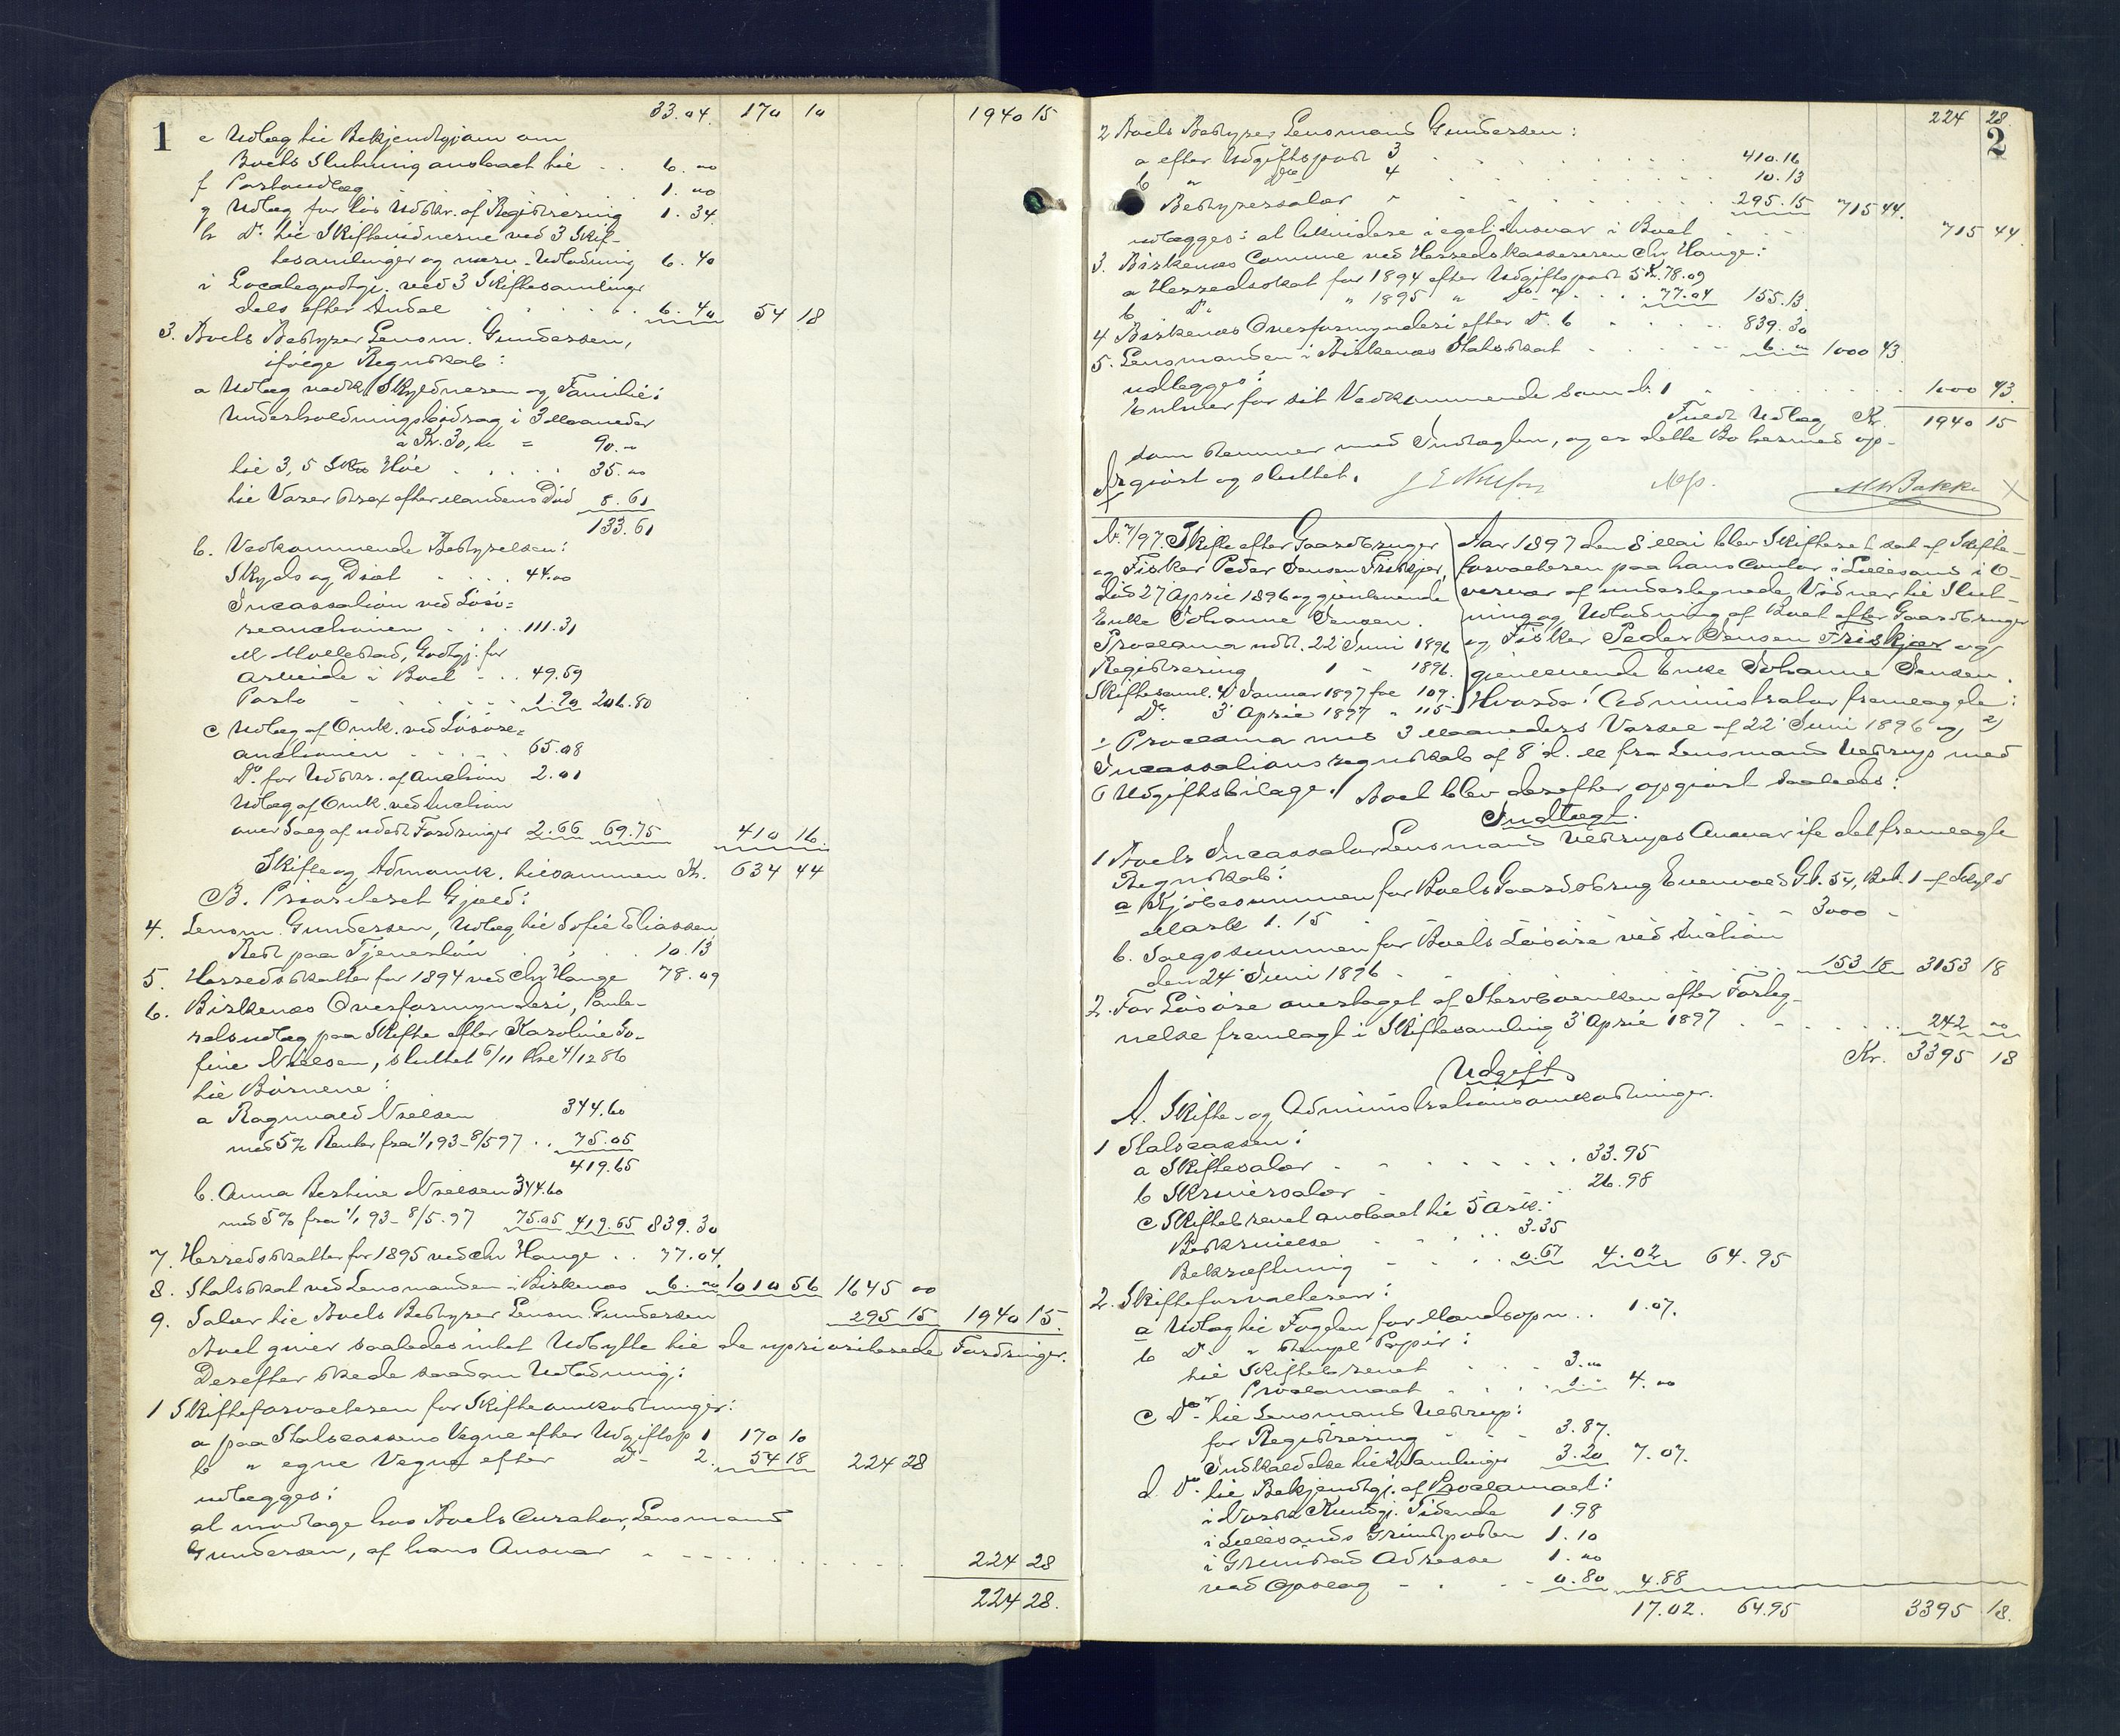 33.04. 170 10 1940 15
1
e Udlæg til Bekjendtgjørn om
Boets Slutning anslaaet til . . 6. 00
f Portoudlæg 1. 00
g Udlæg for lös Udskr. af Registrering 1. 34
h Do. til Skiftevidnerne ved 3 Skif-
tesamlinger og nærv. Udlodning 6. 40
i Localegodtgj. ved 3 Skiftesamlinger
dels efter Andel . . . . 6. 40 54 18
3. Boets Bestyrer Lensm. Gundersen,
ifölge Regnskab:
a Udlæg vedk. Skyldneren og Familie:
Underholdningsbidrag i 3 Maaneder
à Kr. 30,00 = 90. -
til 3,5 Sk Höi . . . . . 35. 00
til Varer strax efter Mandens Död 8. 61
133.61
b. Vedkommende Bestyrelsen:
Skyds og Diæt . . . . 44.00
Incassation ved Lösö-
reauctionen . . . 111.31
M Mollestad, Godtgj. for
Arbeide i Boet - . . 49.59
Porto - . . . . 1.90 206.80
c Udlæg af Omk. ved Lösöre-
auctionen . . . . 65.08
Do. for Udskr. af Auction 2.01
Udlæg af Omk. ved Auction
over Salg af udest. Fordringer 2.66 69.75 410 16.
Skifte og Admomk. tilsammen Kr. 634 44
B. Prioriteret Gjæld:
4. Lensm. Gundersen, Udlæg til Sofie Eliassen
Rest paa Tjenestlön . . . . 10.13
5. Herredsskatter for 1894 ved Chr Hauge 78.09
6. Birkenæs Overformynderi,
udlæg paa Skifte efter Karoline Jo-
fine Nielsen, sluttet 6/11 4/12 86
til Börnene:
a Ragnvald Nielsen 344.60
med 5% Renter fra 1/1 93 - 8/5 97 . . 75.05
419.65
b. Anna Bertine Nielsen 344.60
med 5% fra 1/1 93 - 8/5. 97 75.05 419.65 839.30
7. Herredsskatter for 1895 ved Chr Hauge . . 77.04.
8. Statsskat ved Lensmanden i Birkenæs 6. 00 1010 56 1645 00
9. Salær til Boets Bestyrer Lensm. Gundersen 295 15 1940 15.
Boet giver saaledes intet Udbytte til de uprioriterede Fordringer.
Derefter skede saadan Udlodning:
1 Skifteforvalteren for Skifteomkostninger:
a paa Statscassens Vegne efter Udgiftsp 1 170 10
b " egne Vegne efter Do- 2. 54 18 224 28
udlægges:
at modtage hos Boets Curator, Lensmand
Gundersen, af hans Ansvar - - - . . . . . . 224 28
224 28.
224 28.
2
2 Boets Bestyrer Lensmand Gundersen:
a efter Udgiftspost 3 . . . . . . 410.16
b " Do 4 . . . . . . 10.13
Bestyrersalær . . . . . . 295.15 715 44.
udlægges: at likvidere i eget Ansvar i Boet . . . 715 44
3. Birkenæs Comune ved Herredskassereren Chr Hauge:
a Herredsskat for 1894 efter Udgiftspost 5 Kr. 78.09
b Do. " 1895 " Do 7 . . . 77.04 155.13
4 Birkenæs Overformynderi efter Do. 6 . . . . 839.30
5. Lensmanden i Birkenæs Statsskat . . . . 6. 00 1000 43.
udlægges:
Enhver for sit Vedkommende som ad. 1 . . . . . . 1000 43.
Tilsd. Udlæg Kr. 1940 15
som stemmer med Indtægten, og er dette Bo hermed op-
gjort og sluttet. J E Nilsen MWBakke
No. 7/97. Skifte efter Gaardbruger
og Fisker Peder Jensen Friskjær,
död 27 April 1896 og gjenlevende
Enke Johanne Jensen.
Proclama udst. 22 Juni 1896
Registrering 1 " 1896.
Skiftesaml. 4' Januar 1897 fol 109.
Do. 3' April 1897 " 115
Aar 1897 den 8 Mai blev Skifteret sat af Skifte-
forvalteren paa hans Contor i Lillesand i O-
vervær af undertegnede Vidner til Slut-
ning og Udlodning af Boet efter Gaardbruger
og Fisker Peder Jensen Friskjær og
gjenlevende Enke Johanne Jensen.
Hvorda! Administrator fremlagde:
1) Proclama med 3 Maaneders Varsel af 22 Juni 1896 og, 2)
Incassationsregnskab af 8' d. M fra Lensmand Uldrup med
6 Udgiftsbilage. Boet blev derefter opgjort saaledes:
Indtægt.
1 Boets Incassator Lensmand Uldrups Ansvar ifc det fremlagte
Regnskab:
a Kjöbesummen for Boets Gaardsbrug Evenvold G.N. 54, B.N. 1 af Skyld
Mark 1.15 - 3000 -
b. Salgssummen for Boets Lösöre ved Auction
den 24' Juni 1896 - . . . . . 153 18 3153 18
2. For Lösöre overtaget af Stervboenken efter Forteg-
nelse fremlagt i Skiftesamling 3' April 1897 . - . . . 242 00
Kr. 3395 18
Udgift
A. Skifte- og Administrationsomkostninger.
1 Statscassen:
a Skiftesalær . - . . . . . . 33.95
b Skriversalær - . . . . . 26.98
c Skiftebrevet anslaaet til 5 Ark:
Beskrivelse . . . . 3.35
Bekræftning - - . . 0.67 4.02 64.95
2. Skifteforvalteren:
a Udlæg til Fogden for Mandsopn . . 1.07.
b Do. " Stempl. Papir:
til Skiftebrevet . . . 3.00
" Proclamaet . . . . 1. - 4. 00
c Do- til Lensmand Uldrup:
for Registrering - - - 3.87.
Indkaldelse til 2 Samlinger 3.20 7.07.
d. Do. til Bekjendtgj. af Proclamaet:
i Norsk Kundgj. Tidende 1.98
i Lillesands Grimstposten 1.10
i Grimstad Adresse 1. 00
ved Opslag - . . - 0.80 4.88
17.02. 64.95 3395 18.